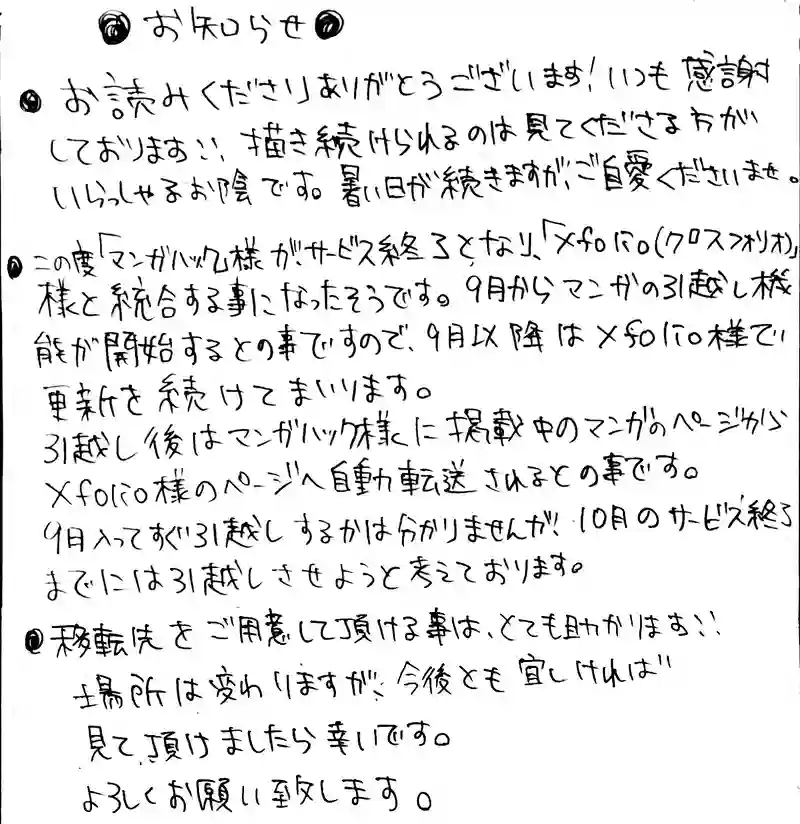 ●お知らせ●
●お読みくださりありがとうございます!いつも感謝
しております!!描き続けられるのは見てくださる方が
いらっしゃるお陰です。暑い日が続きますが、ご自愛くださいませ。
●この度「マンガハック」様が、サービス終了となり、「Xfolio(クロスフォリオ)」
様と統合する事になったそうです。9月からマンガの引越し機
能が開始するとの事ですので、9月以降はXfolio様で
更新を続けてまいります。
引越し後はマンガハック様に掲載中のマンガのページから
Xfolio様のページへ自動転送されるとの事です。
9日入ってすぐ引越しするかは分かりませんが、10月のサービス終了
までには引越しさせようと考えております。
●移転先をご用意して頂ける事は、とても助かります!!
場所は変わりますが、今後とも宜しければ
見て頂けましたら幸いです。
よろしくお願い致します。